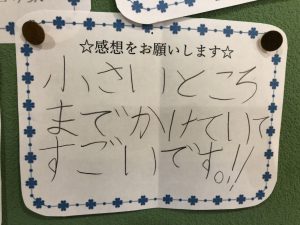 ☆感想をお願いします☆
小さいところ
までかけていて
すごいです。!!